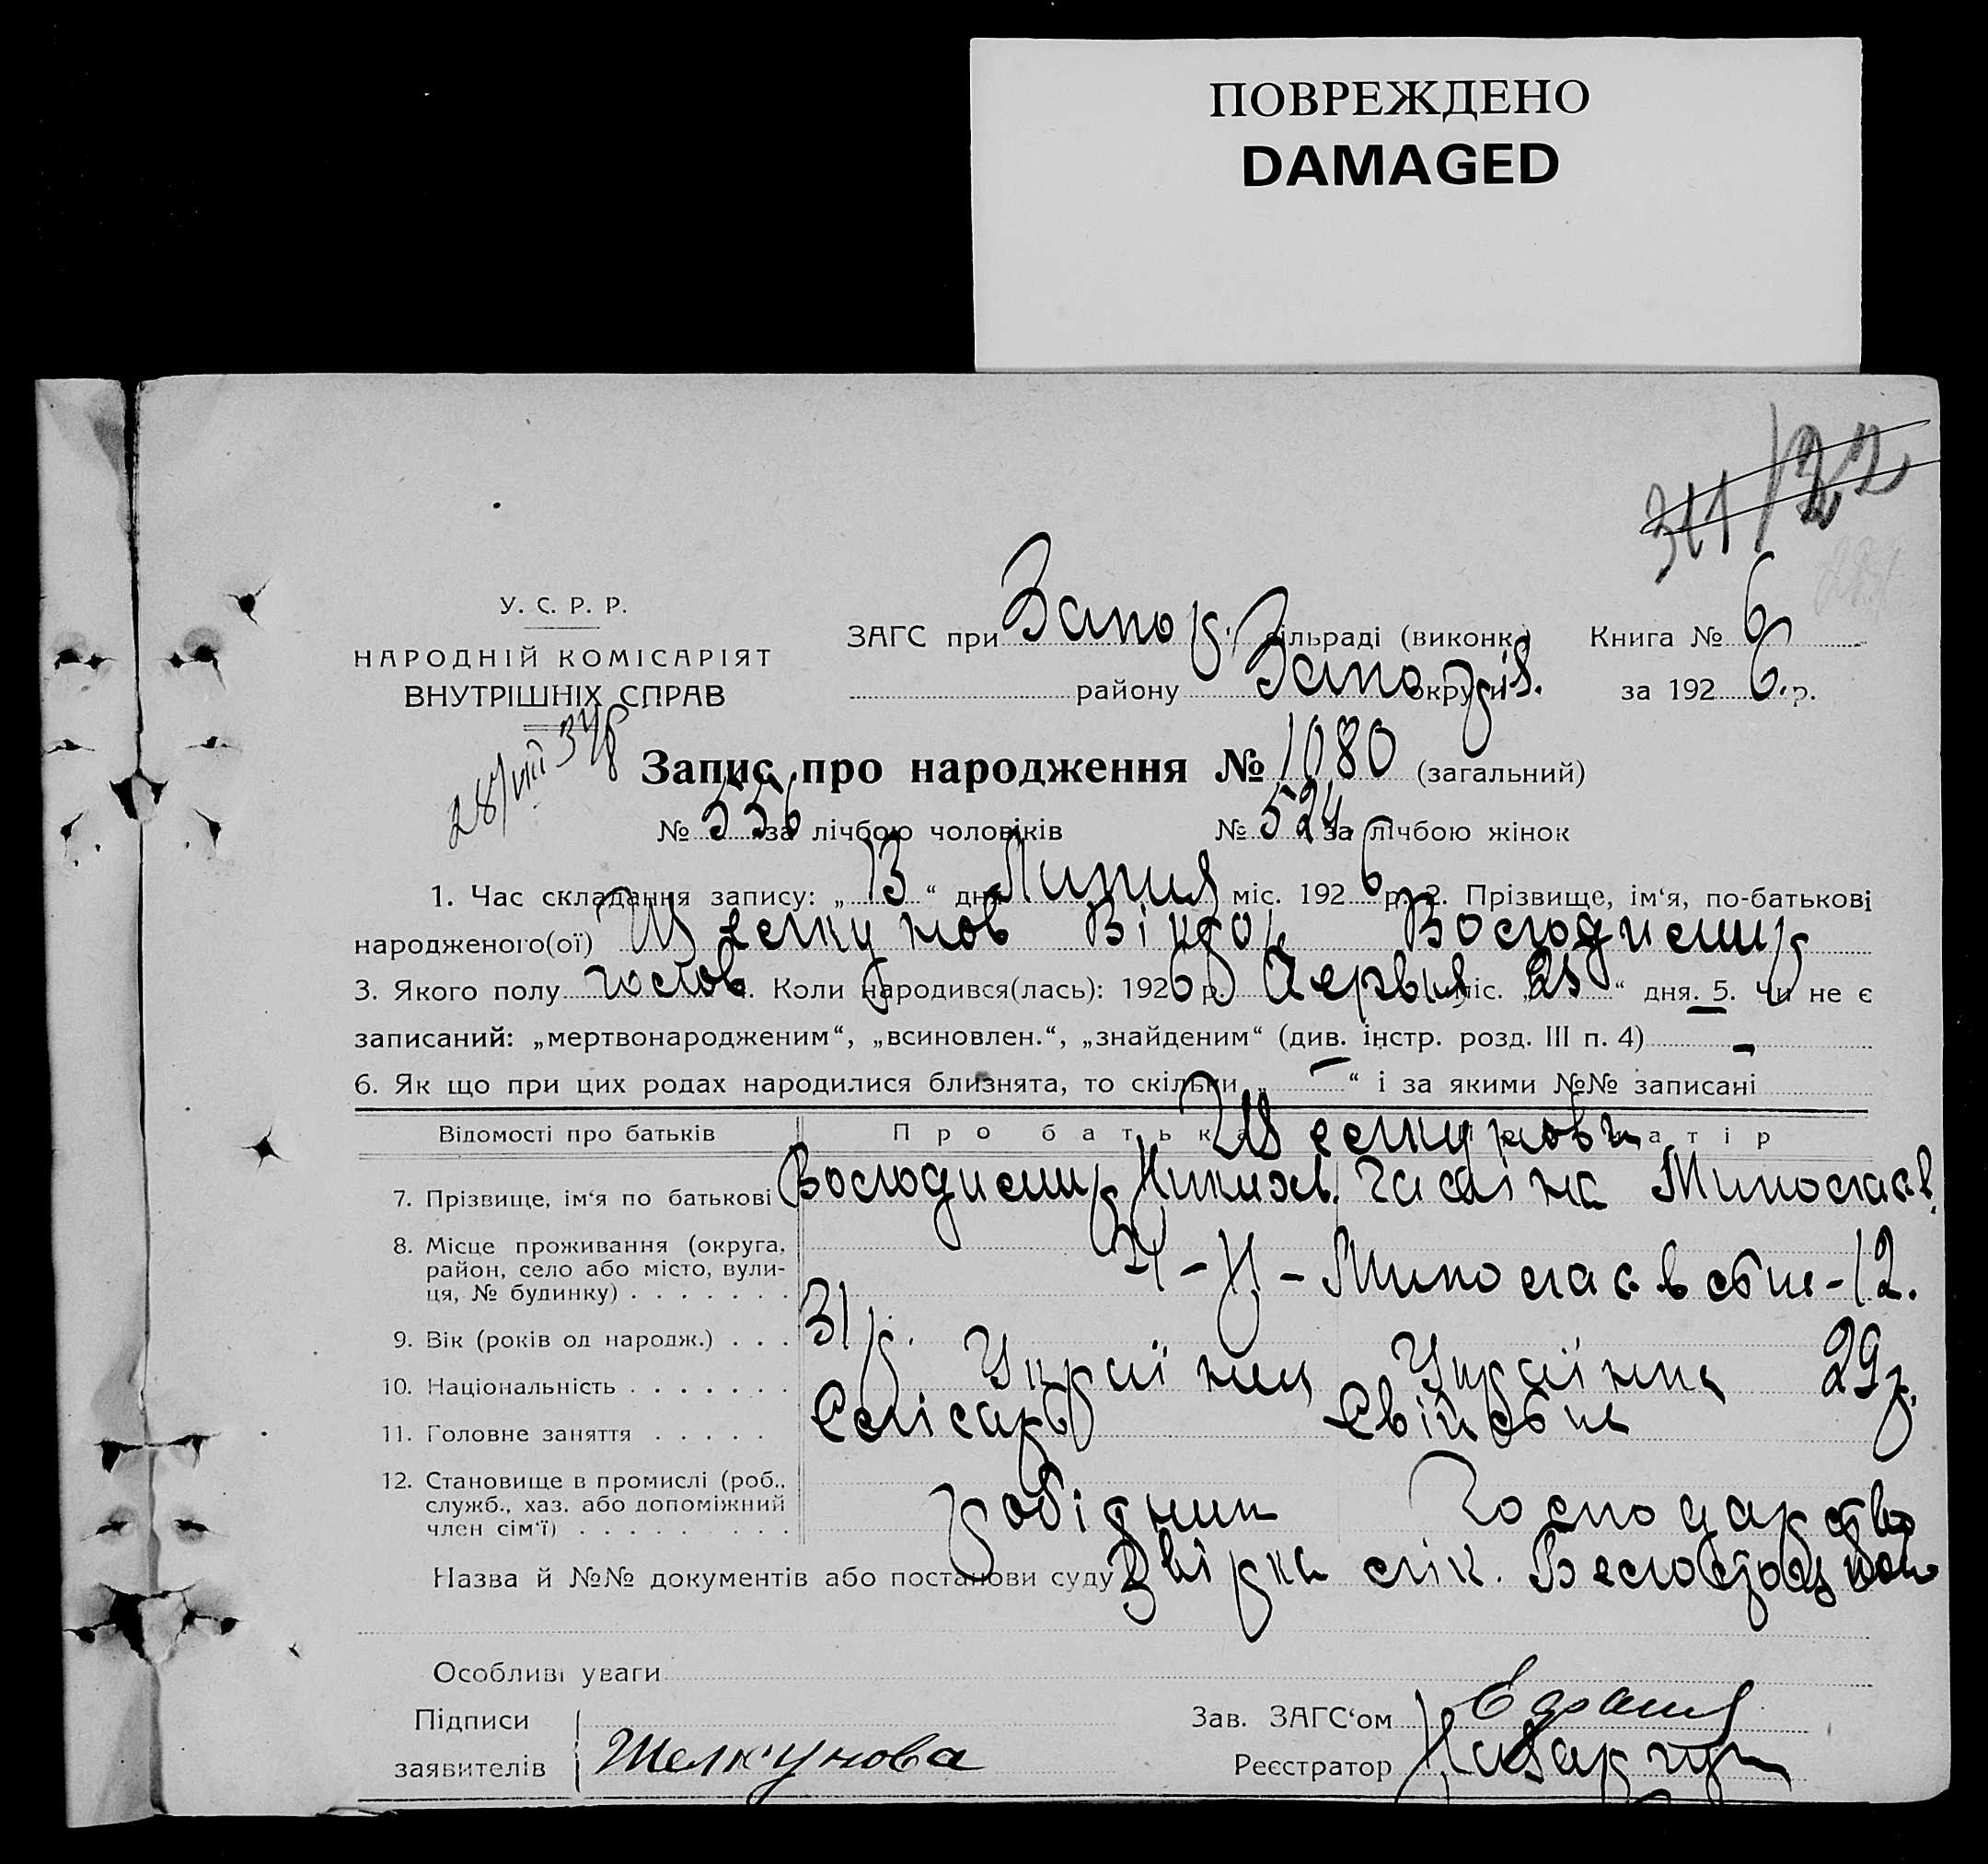 ПОВРЕЖДЕНО
DAMAGED
311/22
У. С. Р. Р.
НАРОДНІЙ КОМІСАРІЯТ
ВНУТРІШНІХ СПРАВ
ЗАГС при Запор. сільраді (виконк.) Книга № 6
району Запоріз. округи за 1926 р.
28/VIII
Запис про народження № 1080 (загальний)
№ 556 за лічбою чоловіків № 524 за лічбою жінок
1. Час складання запису: „13“ дня Липня міс. 1926 р. 2. Прізвище, ім‘я, по-батькові
народженого(ої) Шелкунов Віктор Володимир
3. Якого полу чолов. 4. Коли народився(лась): 1926 р. Червня міс. „25“ дня. 5. Чи не є
записаний: „мертвонародженим“, „всиновлен.“, „знайденим“ (див. інстр. розд. III п. 4) —
6. Як що при цих родах народилися близнята, то скільки „—“ і за якими №№ записані
Відомості про батьків Про батька Про матір
Шелкунови
7. Прізвище, ім‘я по батькові Володимир Никол. Галіна Миколаєв.
8. Місце проживання (округа, район, село або місто, вули-ця, № будинку) . . . . . . . Миколаєвська-12.
9. Вік (років од народж.) . . . 31 р. 29 р.
10. Національність . . . . . . . Українец Українка
11. Головне заняття . . . . . Слісарь Свійське
12. Становище в промислі (роб., служб., хаз. або допоміжний член сім‘ї) . . . . . . . . . робідник Господарство
Назва й №№ документів або постанови суду Звірка лік.
Особливі уваги
Підписи Зав. ЗАГС‘ом
заявителів Шелкунова Реєстратор